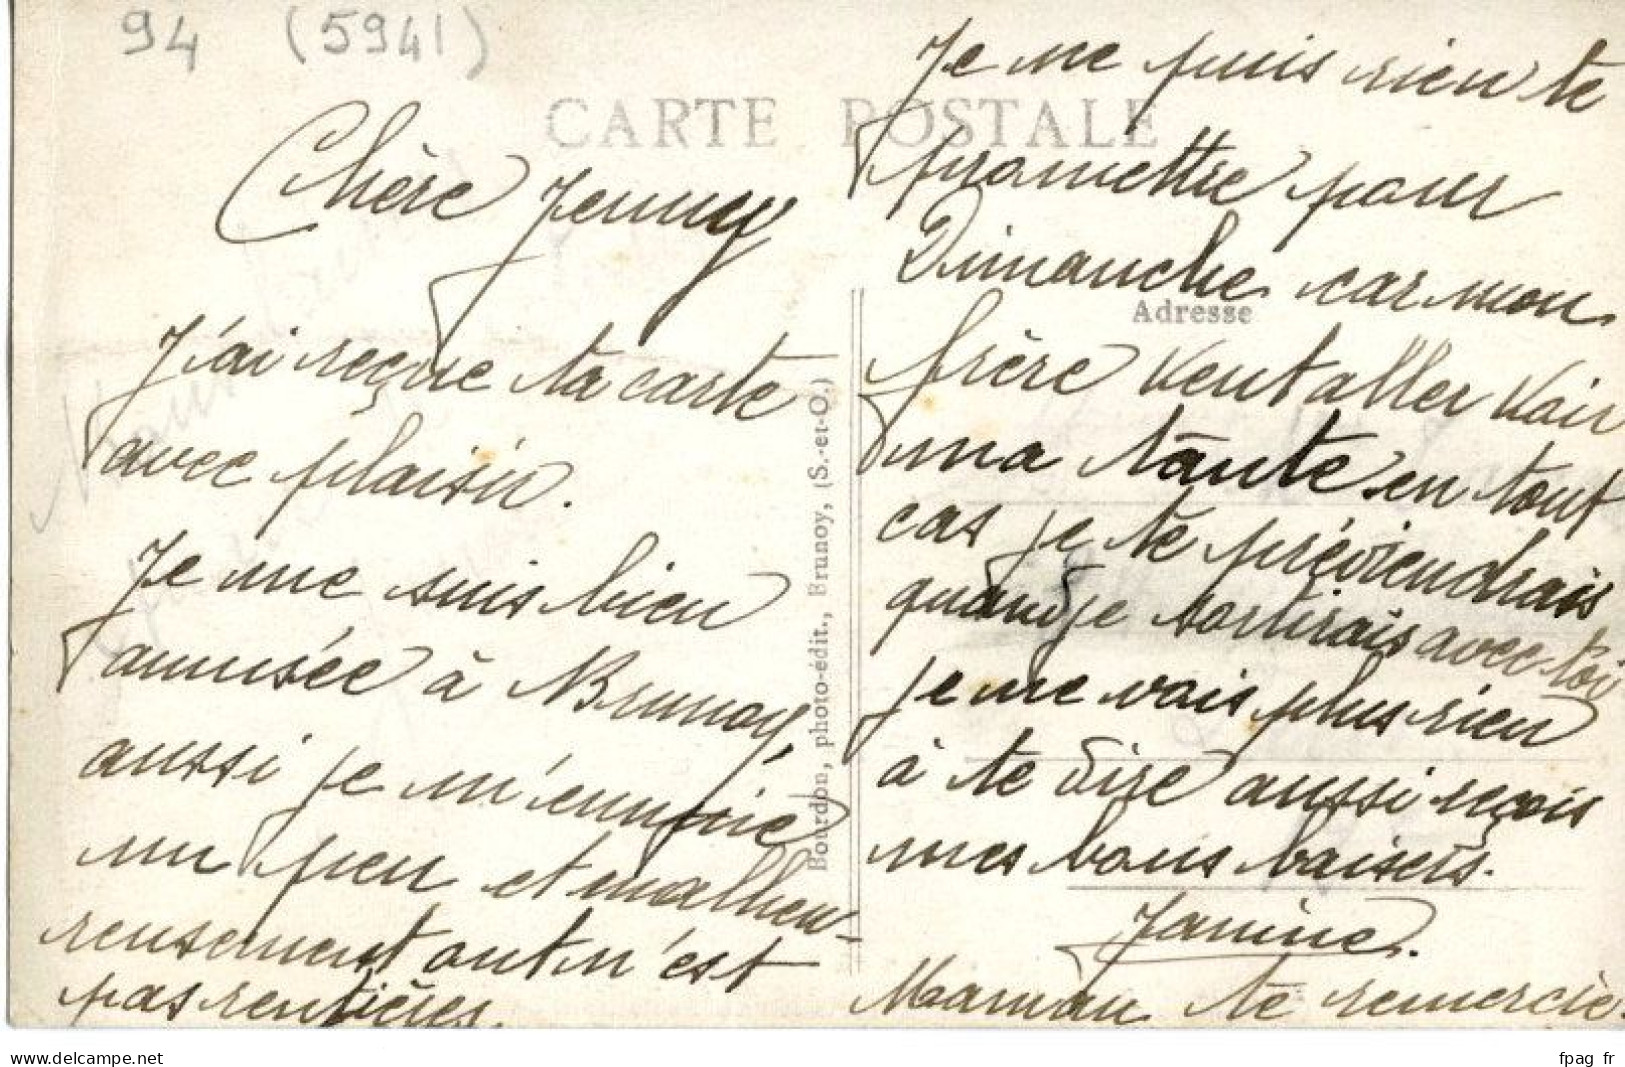 94 (5941)
CARTE POSTALE
Chère Jenny
J'ai reçue ta carte
avec plaisir.
Je me suis bien
amusée à Brunoy,
aussi je m'ennuie
un peu et malheu-
reusement on n'est
pas rentières.
Bourdon, photo-édit., Brunoy, (S.-et-O.)
Je ne puis rien te
promettre pour
Dimanche car mon
Adresse
frère veut aller voir
ma tante en tout
cas je te préviendrais
quand je sortirais avec toi
je ne vais plus rien
à te dire aussi reçois
mes bons baisers.
Janine.
Maman te remercie.
www.delcampe.com
fpag_fr